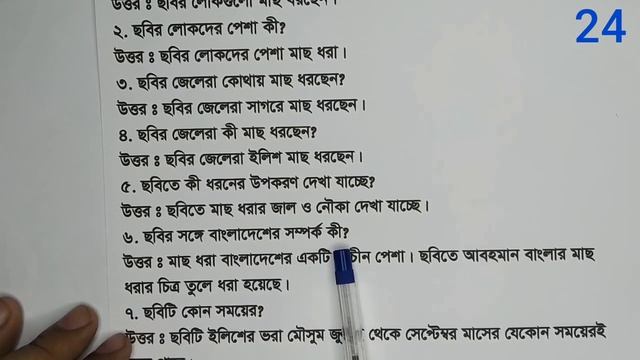 উত্তর ঃ ছবির লোকগুলো মাছ ধরছেন।
24
২. ছবির লোকদের পেশা কী?
উত্তর ঃ ছবির লোকদের পেশা মাছ ধরা।
৩. ছবির জেলেরা কোথায় মাছ ধরছেন?
উত্তর ঃ ছবির জেলেরা সাগরে মাছ ধরছেন।
৪. ছবির জেলেরা কী মাছ ধরছেন?
উত্তর ঃ ছবির জেলেরা ইলিশ মাছ ধরছেন।
৫. ছবিতে কী ধরনের উপকরণ দেখা যাচ্ছে?
উত্তর ঃ ছবিতে মাছ ধরার জাল ও নৌকা দেখা যাচ্ছে।
৬. ছবির সঙ্গে বাংলাদেশের সম্পর্ক কী?
উত্তর ঃ মাছ ধরা বাংলাদেশের একটি পেশা। ছবিতে আবহমান বাংলার মাছ
ধরার চিত্র তুলে ধরা হয়েছে।
৭. ছবিটি কোন সময়ের?
উত্তর ঃ ছবিটি ইলিশের ভরা মৌসুম থেকে সেপ্টেম্বর মাসের যেকোন সময়েরই